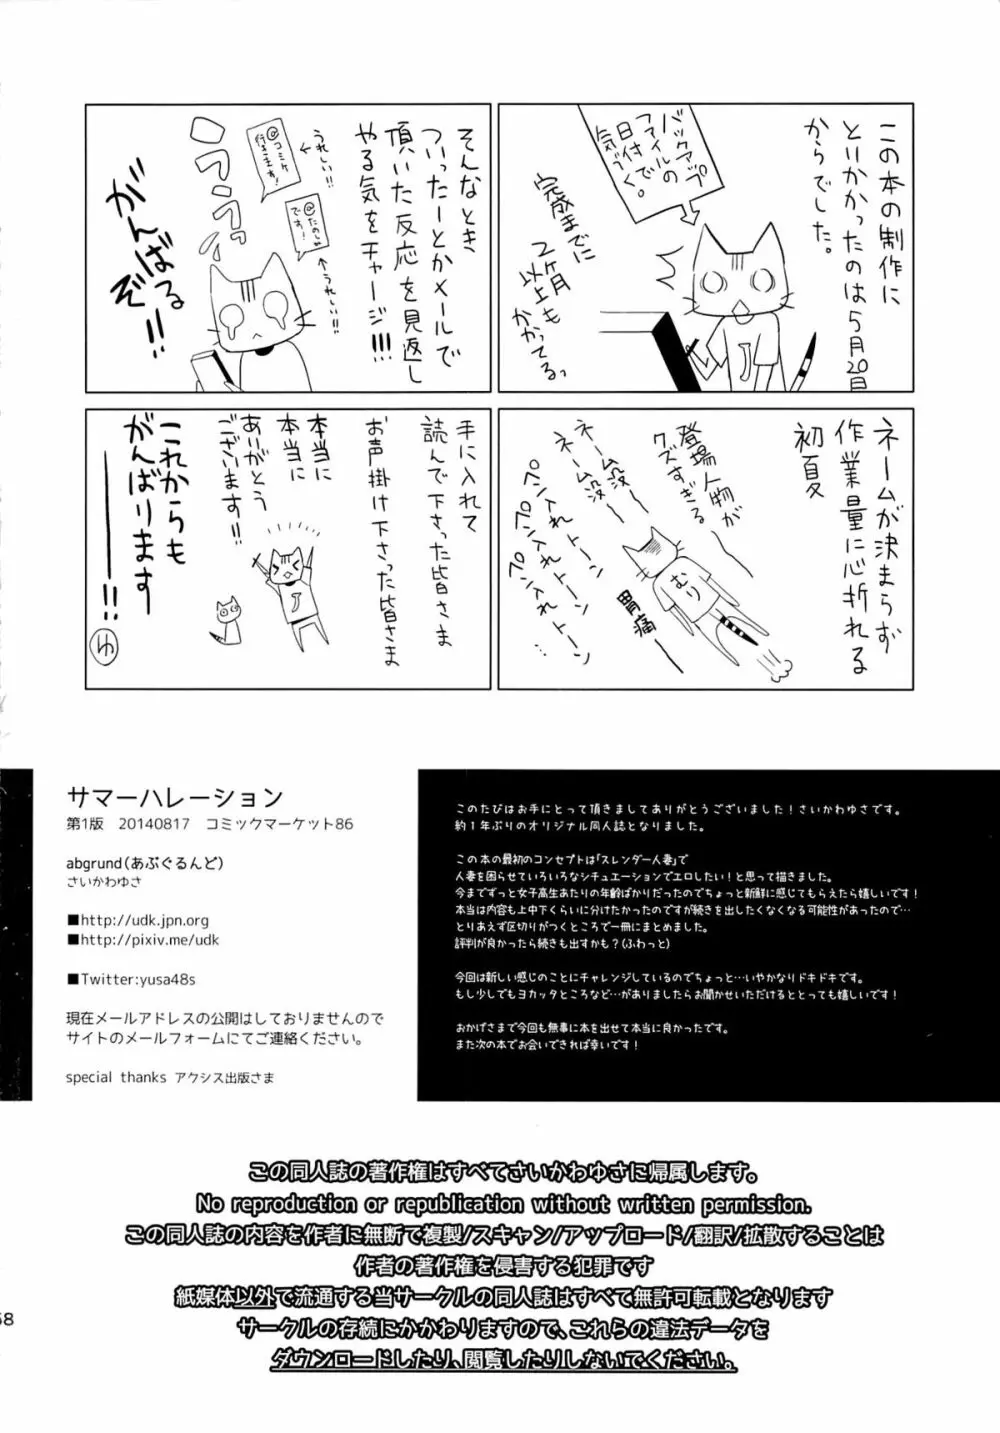 この本の制作に
とりかかったのは5月20日
からでした。
バックアップ
ファイルの
日付で
気づく。
完成までに
2ヶ月
以上も
かかってるっ
J
そんなとき
ついったーとかメールで
頂いた反応を見返し
やる気をチャージ!!!
うれしい!!
@コミケ
行きます!
@たのしみ
です!
うれしい!!
うううっ
がんばる
ぞ!!
ネームが決まらず
作業量に心折れる
初夏
登場人物が
クズすぎる
ネーム没〜
ネーム没〜
ペン入れトーン
ペン入れトーン
ペン入れトーン
むり
胃痛
手に入れて
読んで下さった皆さま
お声掛け下さった皆さま
本当に
本当に
ありがとう
ございます!!
J
これからも
がんばります
――!!
ゆ
サマーハレーション
第1版 20140817 コミックマーケット86
abgrund(あぷぐるんど)
さいかわゆさ
■http://udk.jpn.org
■http://pixiv.me/udk
■Twitter:yusa48s
現在メールアドレスの公開はしておりませんので
サイトのメールフォームにてご連絡ください。
special thanks アクシス出版さま
このたびはお手にとって頂きましてありがとうございました!さいかわゆさです。
約1年ぶりのオリジナル同人誌となりました。
この本の最初のコンセプトは「スレンダー人妻」で
人妻を困らせていろいろなシチュエーションでエロしたい!と思って描きました。
今までずっと女子高生あたりの年齢ばかりだったのでちょっと新鮮に感じてもらえたら嬉しいです!
本当は内容も上中下くらいに分けたかったのですが続きを出したくなくなる可能性があったので…
とりあえず区切りがつくところで一冊にまとめました。
評判が良かったら続きも出すかも?(ふわっと)
今回は新しい感じのことにチャレンジしているのでちょっと…いやかなりドキドキです。
もし少しでもヨカッタところなど…がありましたらお聞かせいただけるととっても嬉しいです!
おかげさまで今回も無事に本を出せて本当に良かったです。
また次の本でお会いできれば幸いです!
この同人誌の著作権はすべてさいかわゆさに帰属します。
No reproduction or republication without written permission.
この同人誌の内容を作者に無断で複製/スキャン/アップロード/翻訳/拡散することは
作者の著作権を侵害する犯罪です
紙媒体以外で流通する当サークルの同人誌はすべて無許可転載となります
サークルの存続にかかわりますので、これらの違法データを
ダウンロードしたり、閲覧したりしないでください。